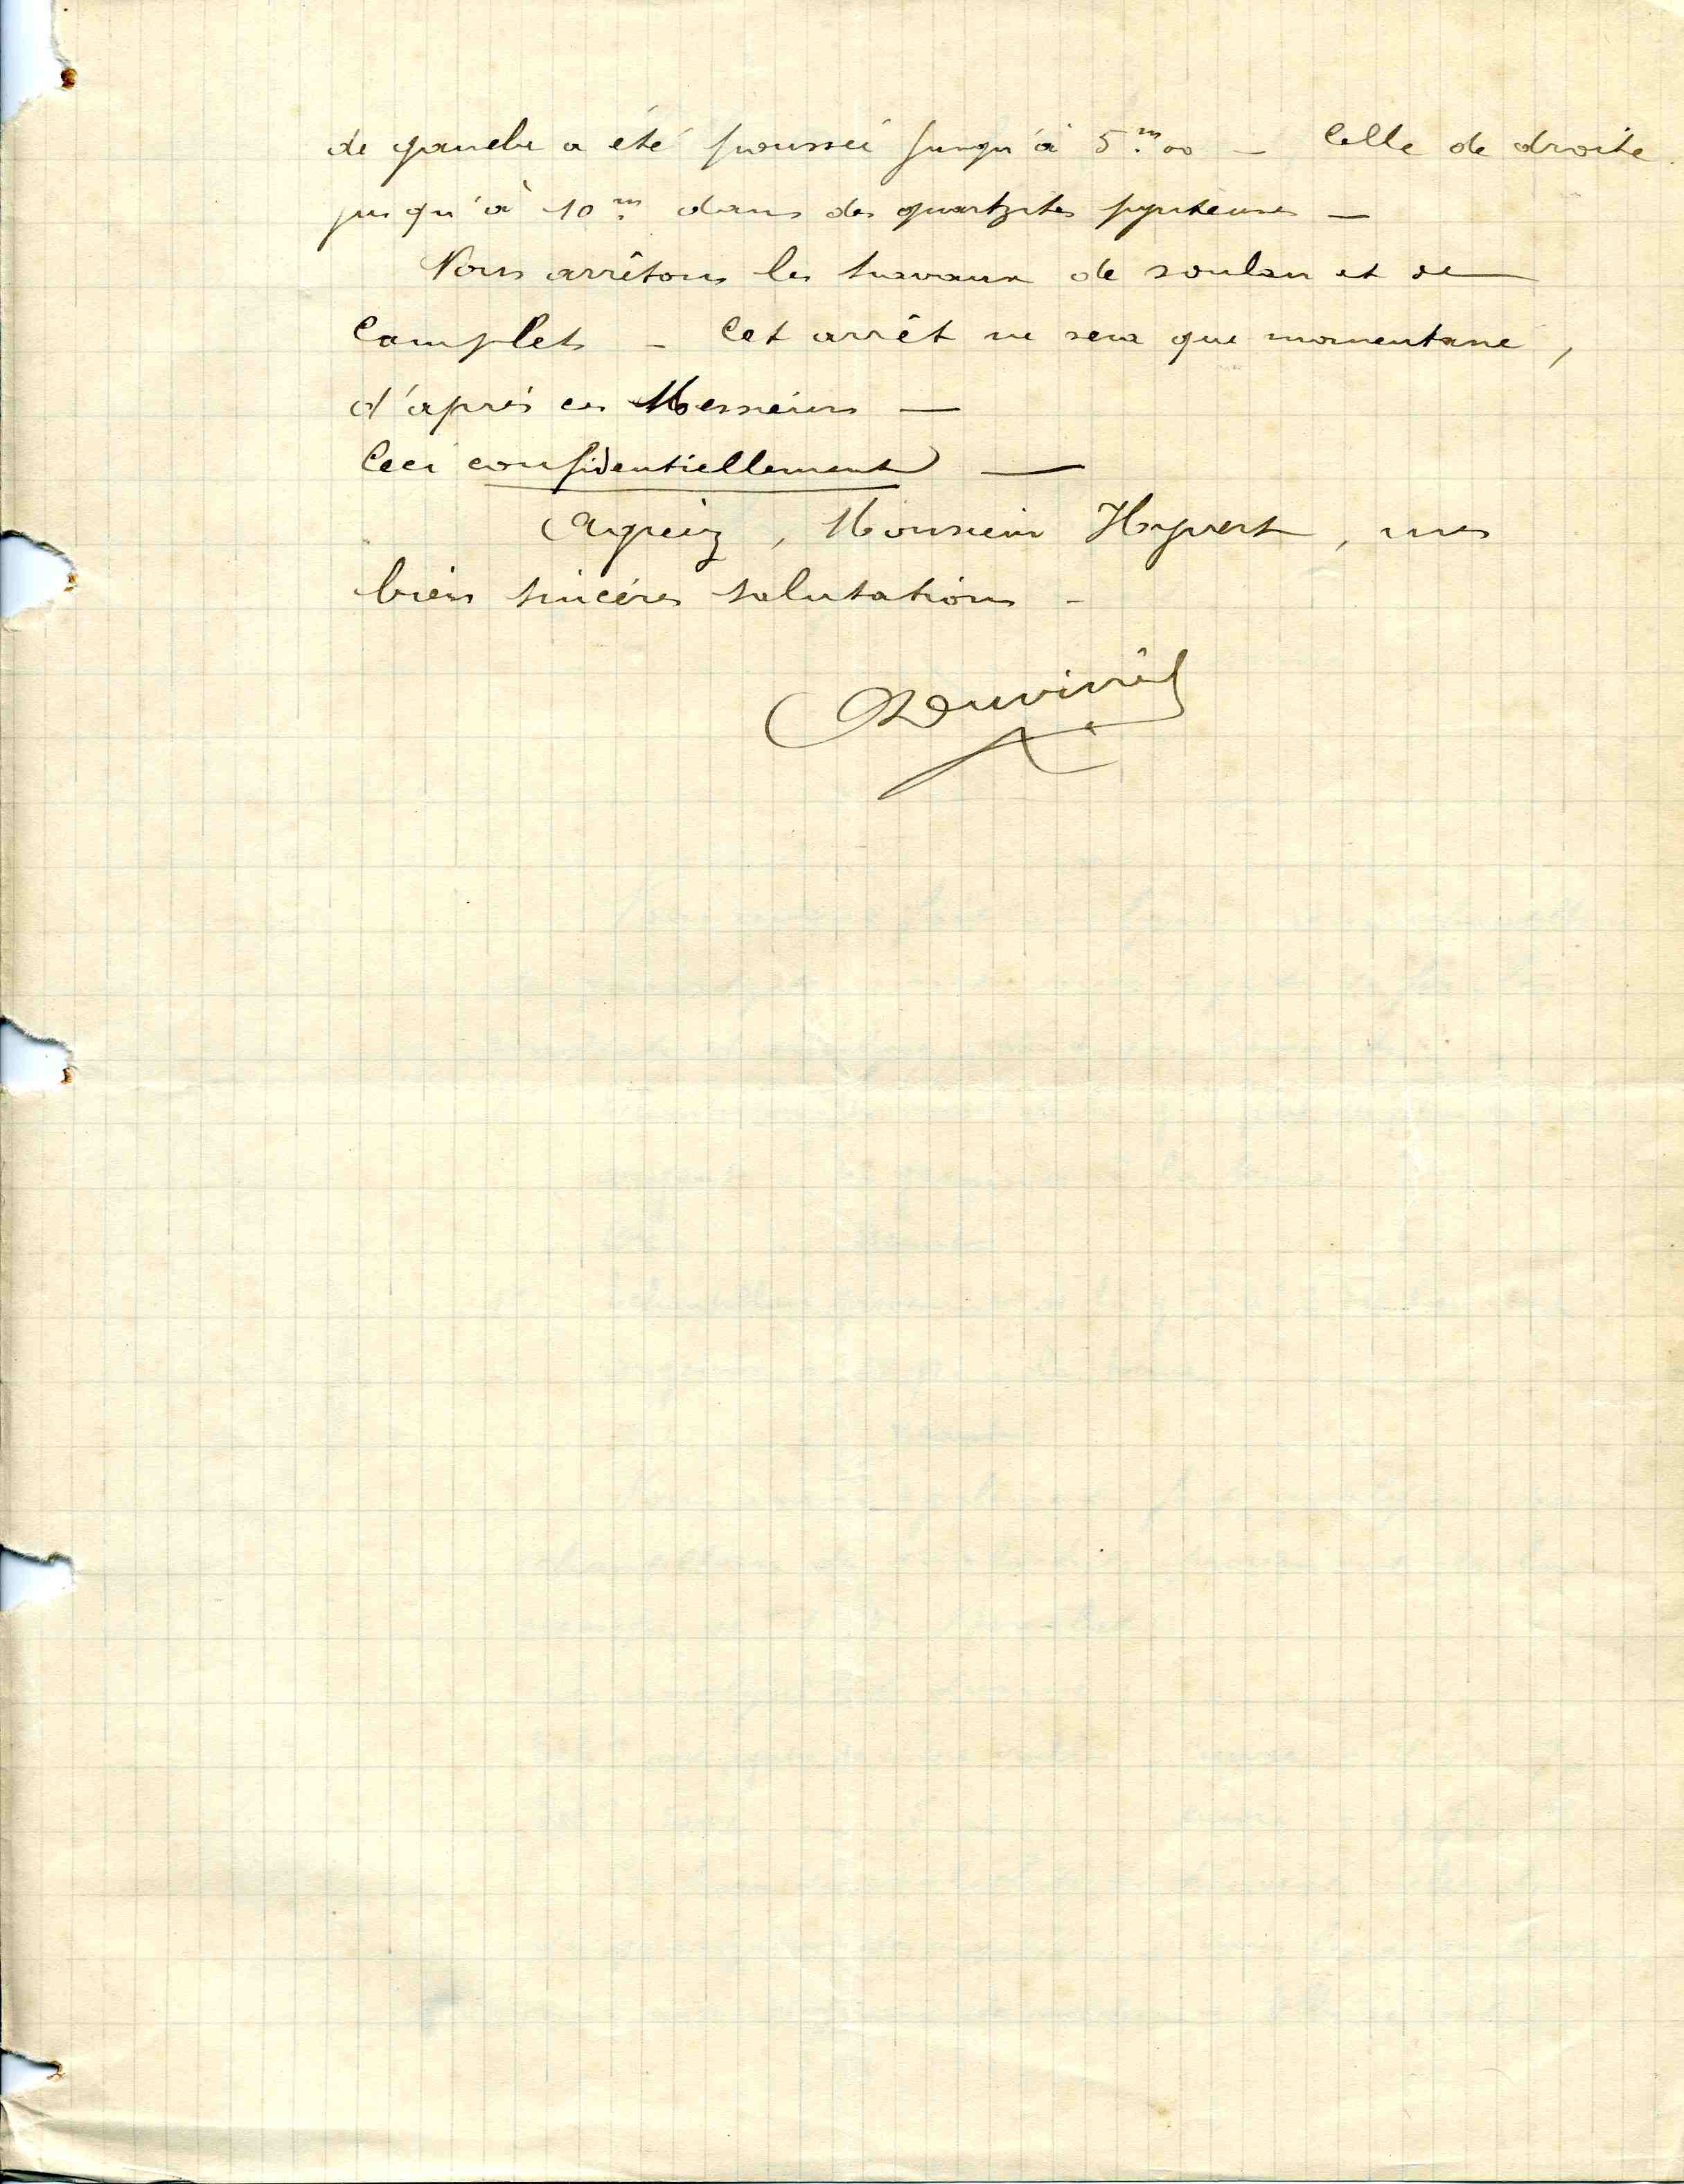 de gauche a été poussée jusqu'à 5.m00 – Celle de droite
jusqu'à 10.m dans des quartzites pyriteuses –
Nous arrêtons les travaux de soulan et de
Camplet – Cet arrêt ne sera que momentané,
d'après ces Messieurs –
Ceci confidentiellement –
Agréez, Monsieur Hyvert, mes
bien sincères salutations –